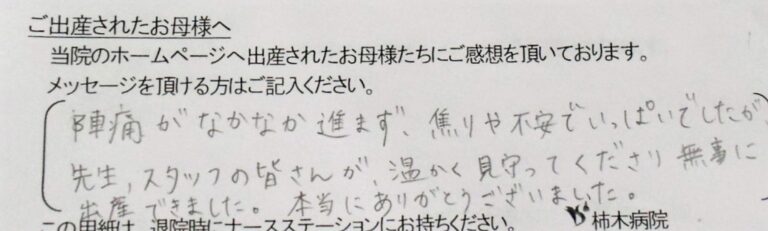 ご出産されたお母様へ
当院のホームページへ出産されたお母様たちにご感想を頂いております。
メッセージを頂ける方はご記入ください。
陣痛がなかなか進まず、焦りや不安でいっぱいでしたが、
先生、スタッフの皆さんが、温かく見守ってくださり無事に
出産できました。本当にありがとうございました。
この用紙は、退院時にナースステーションにお持ちください。 柿木病院